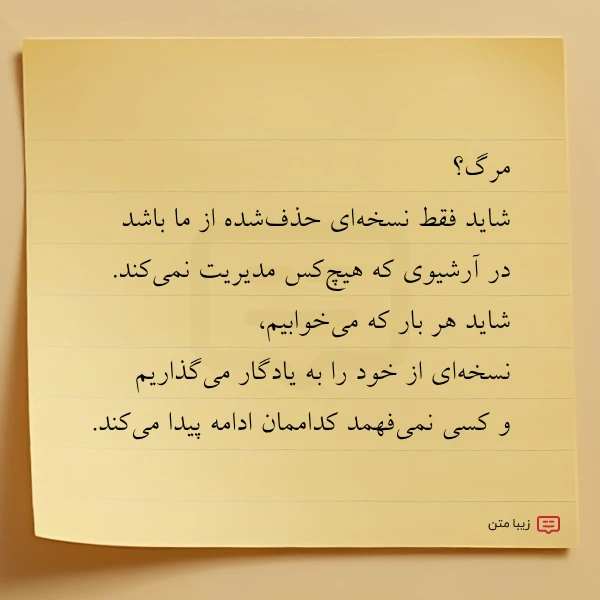 مرگ؟
شاید فقط نسخه‌ای حذف‌شده از ما باشد
در آرشیوی که هیچ‌کس مدیریت نمی‌کند.
شاید هر بار که می‌خوابیم،
نسخه‌ای از خود را به یادگار می‌گذاریم
و کسی نمی‌فهمد کداممان ادامه پیدا می‌کند.
زیبا متن